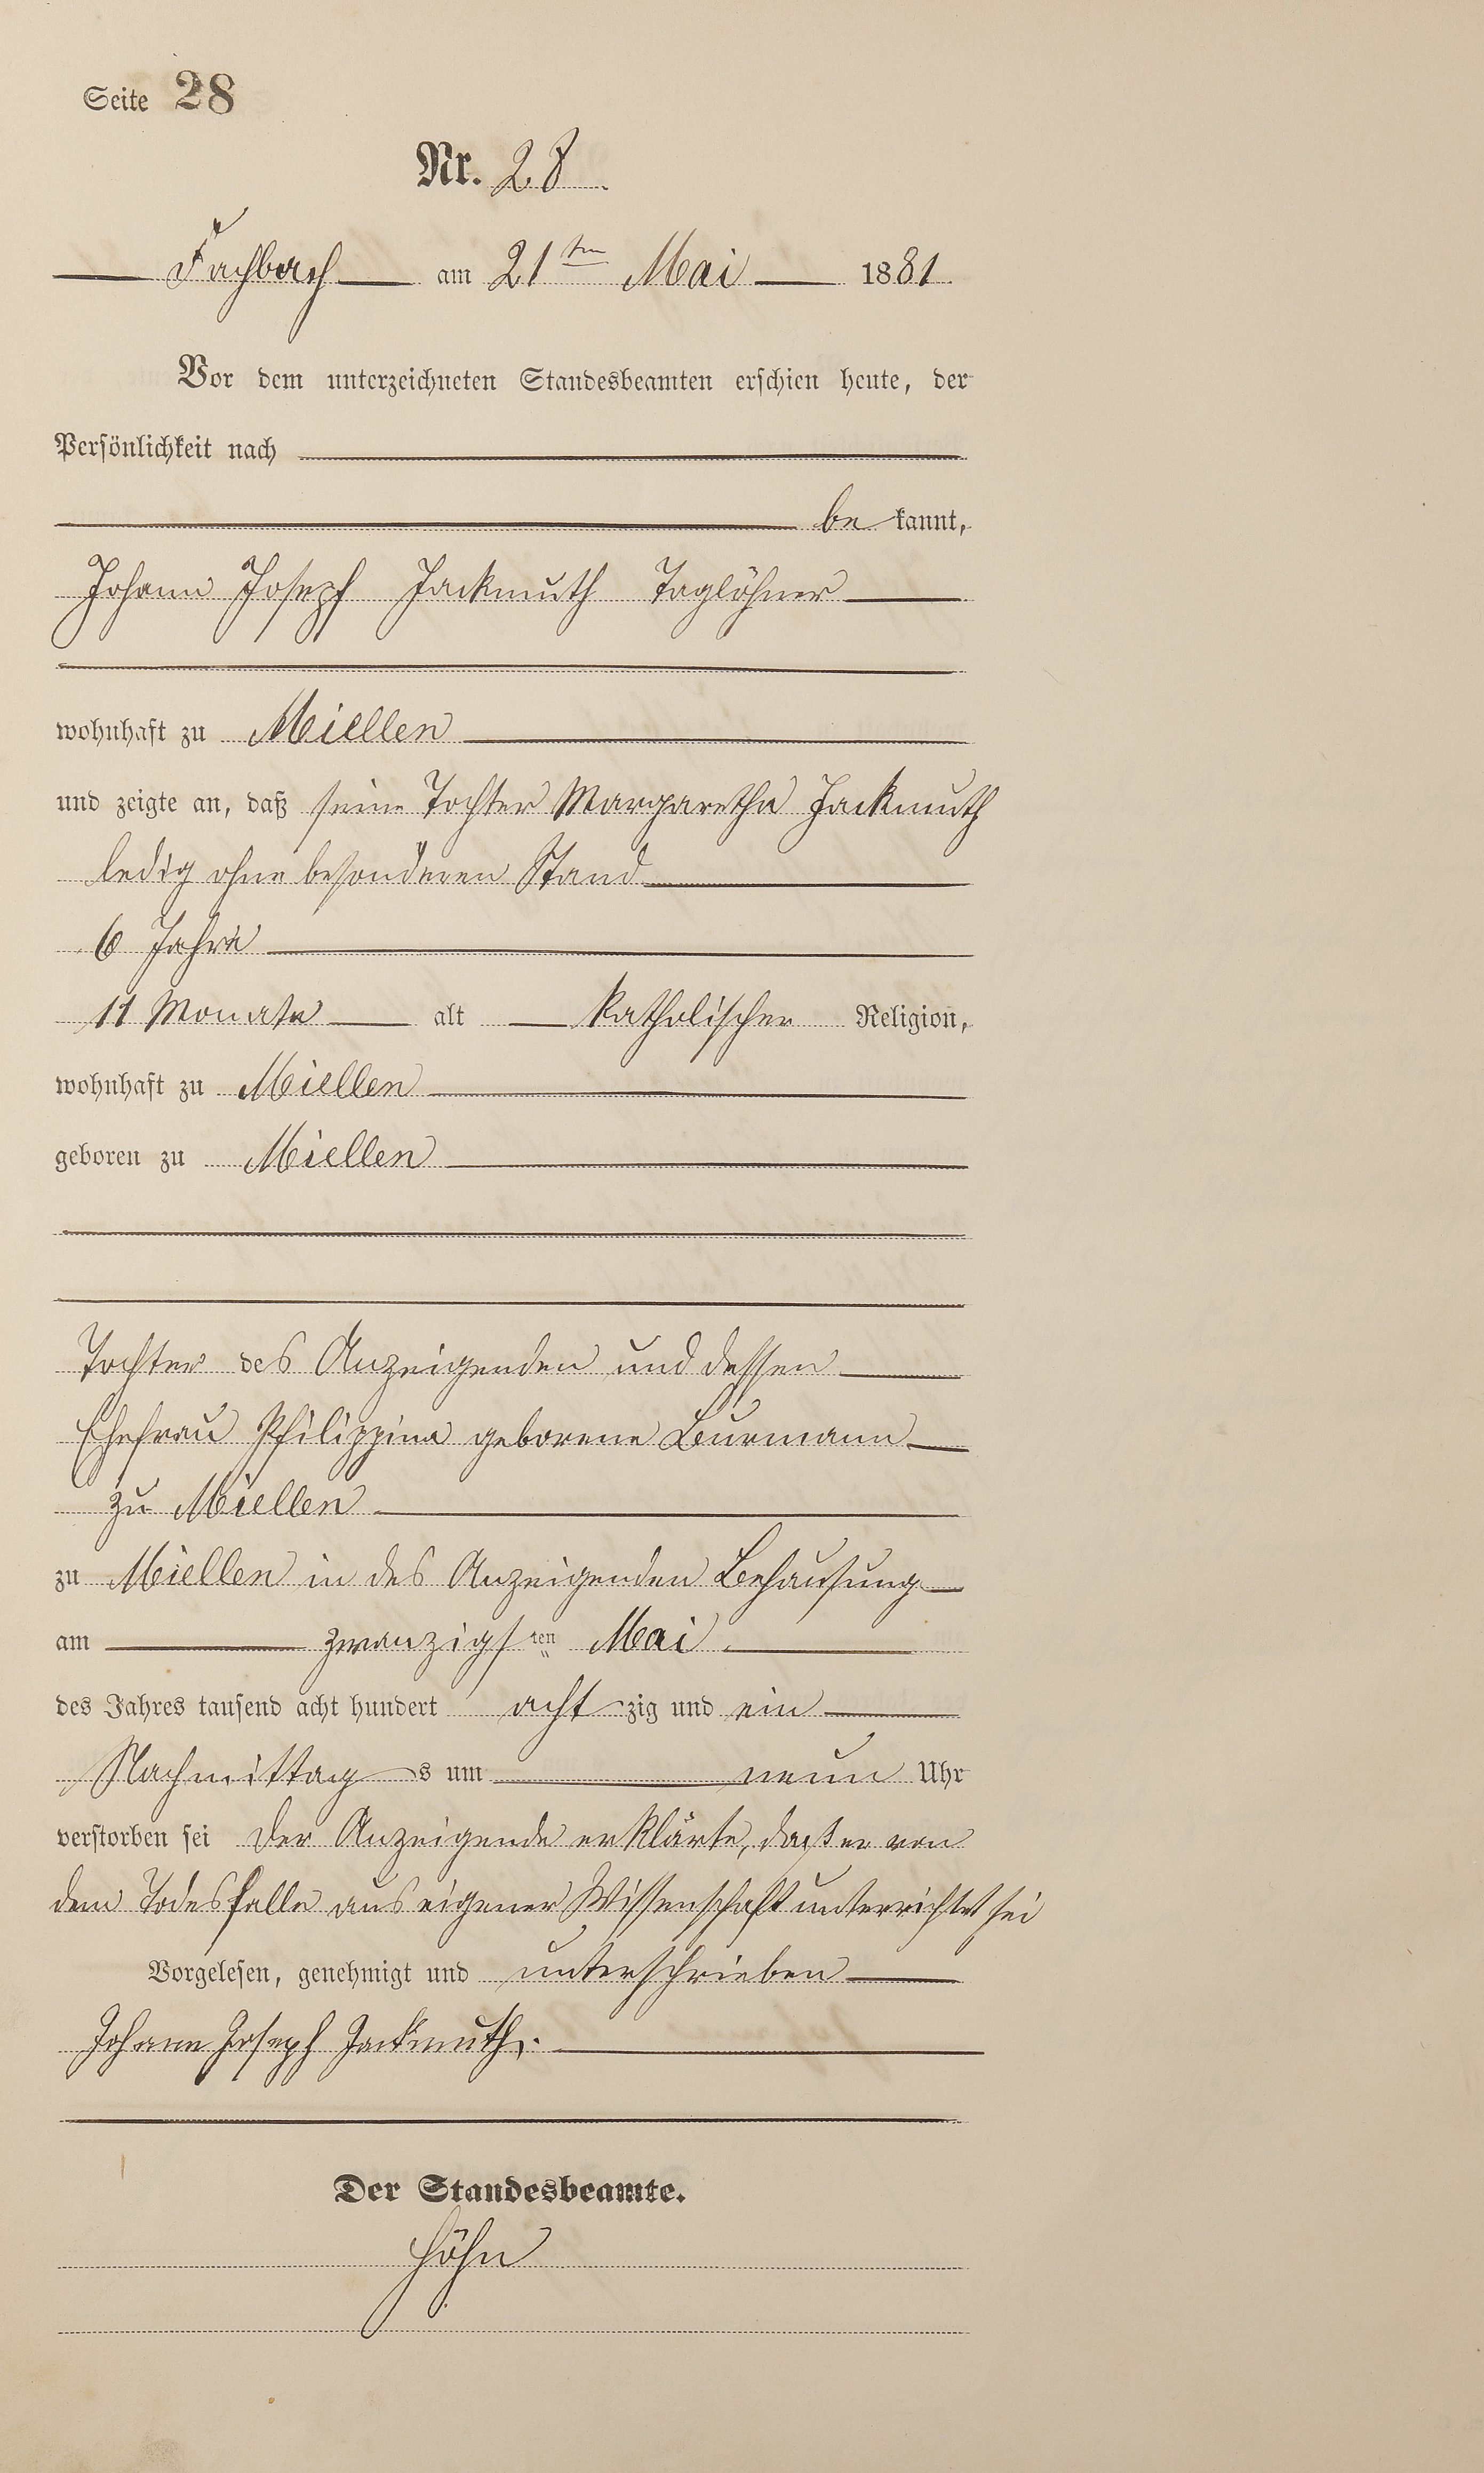 Seite 28
Nr. 28
Fachbach am 21ten Mai 1881.
Vor dem unterzeichneten Standesbeamten erschien heute, der
Persönlichkeit nach
be kannt,
Johann Joseph Jackmuth Taglöhner
wohnhaft zu Miellen
und zeigte an, daß seine Tochter Margaretha Jackmuth
ledig ohne besonderen Stand
6 Jahre
11 Monate alt katholischer Religion,
wohnhaft zu Miellen
geboren zu Miellen
Tochter des Anzeigenden und dessen
Ehefrau Philippina geborene Burmann
zu Miellen
zu Miellen in des Anzeigenden Behausung
am zwanzigsten Mai
des Jahres tausend acht hundert acht zig und ein
Nachmittag s um neun Uhr
verstorben sei der Anzeigende erklärte, daß er von
dem Todesfalle aus eigener Wissenschaft unterrichtet sei
Vorgelesen, genehmigt und unterschrieben
Johann Joseph Jackmuth.
Der Standesbeamte.
Höhn